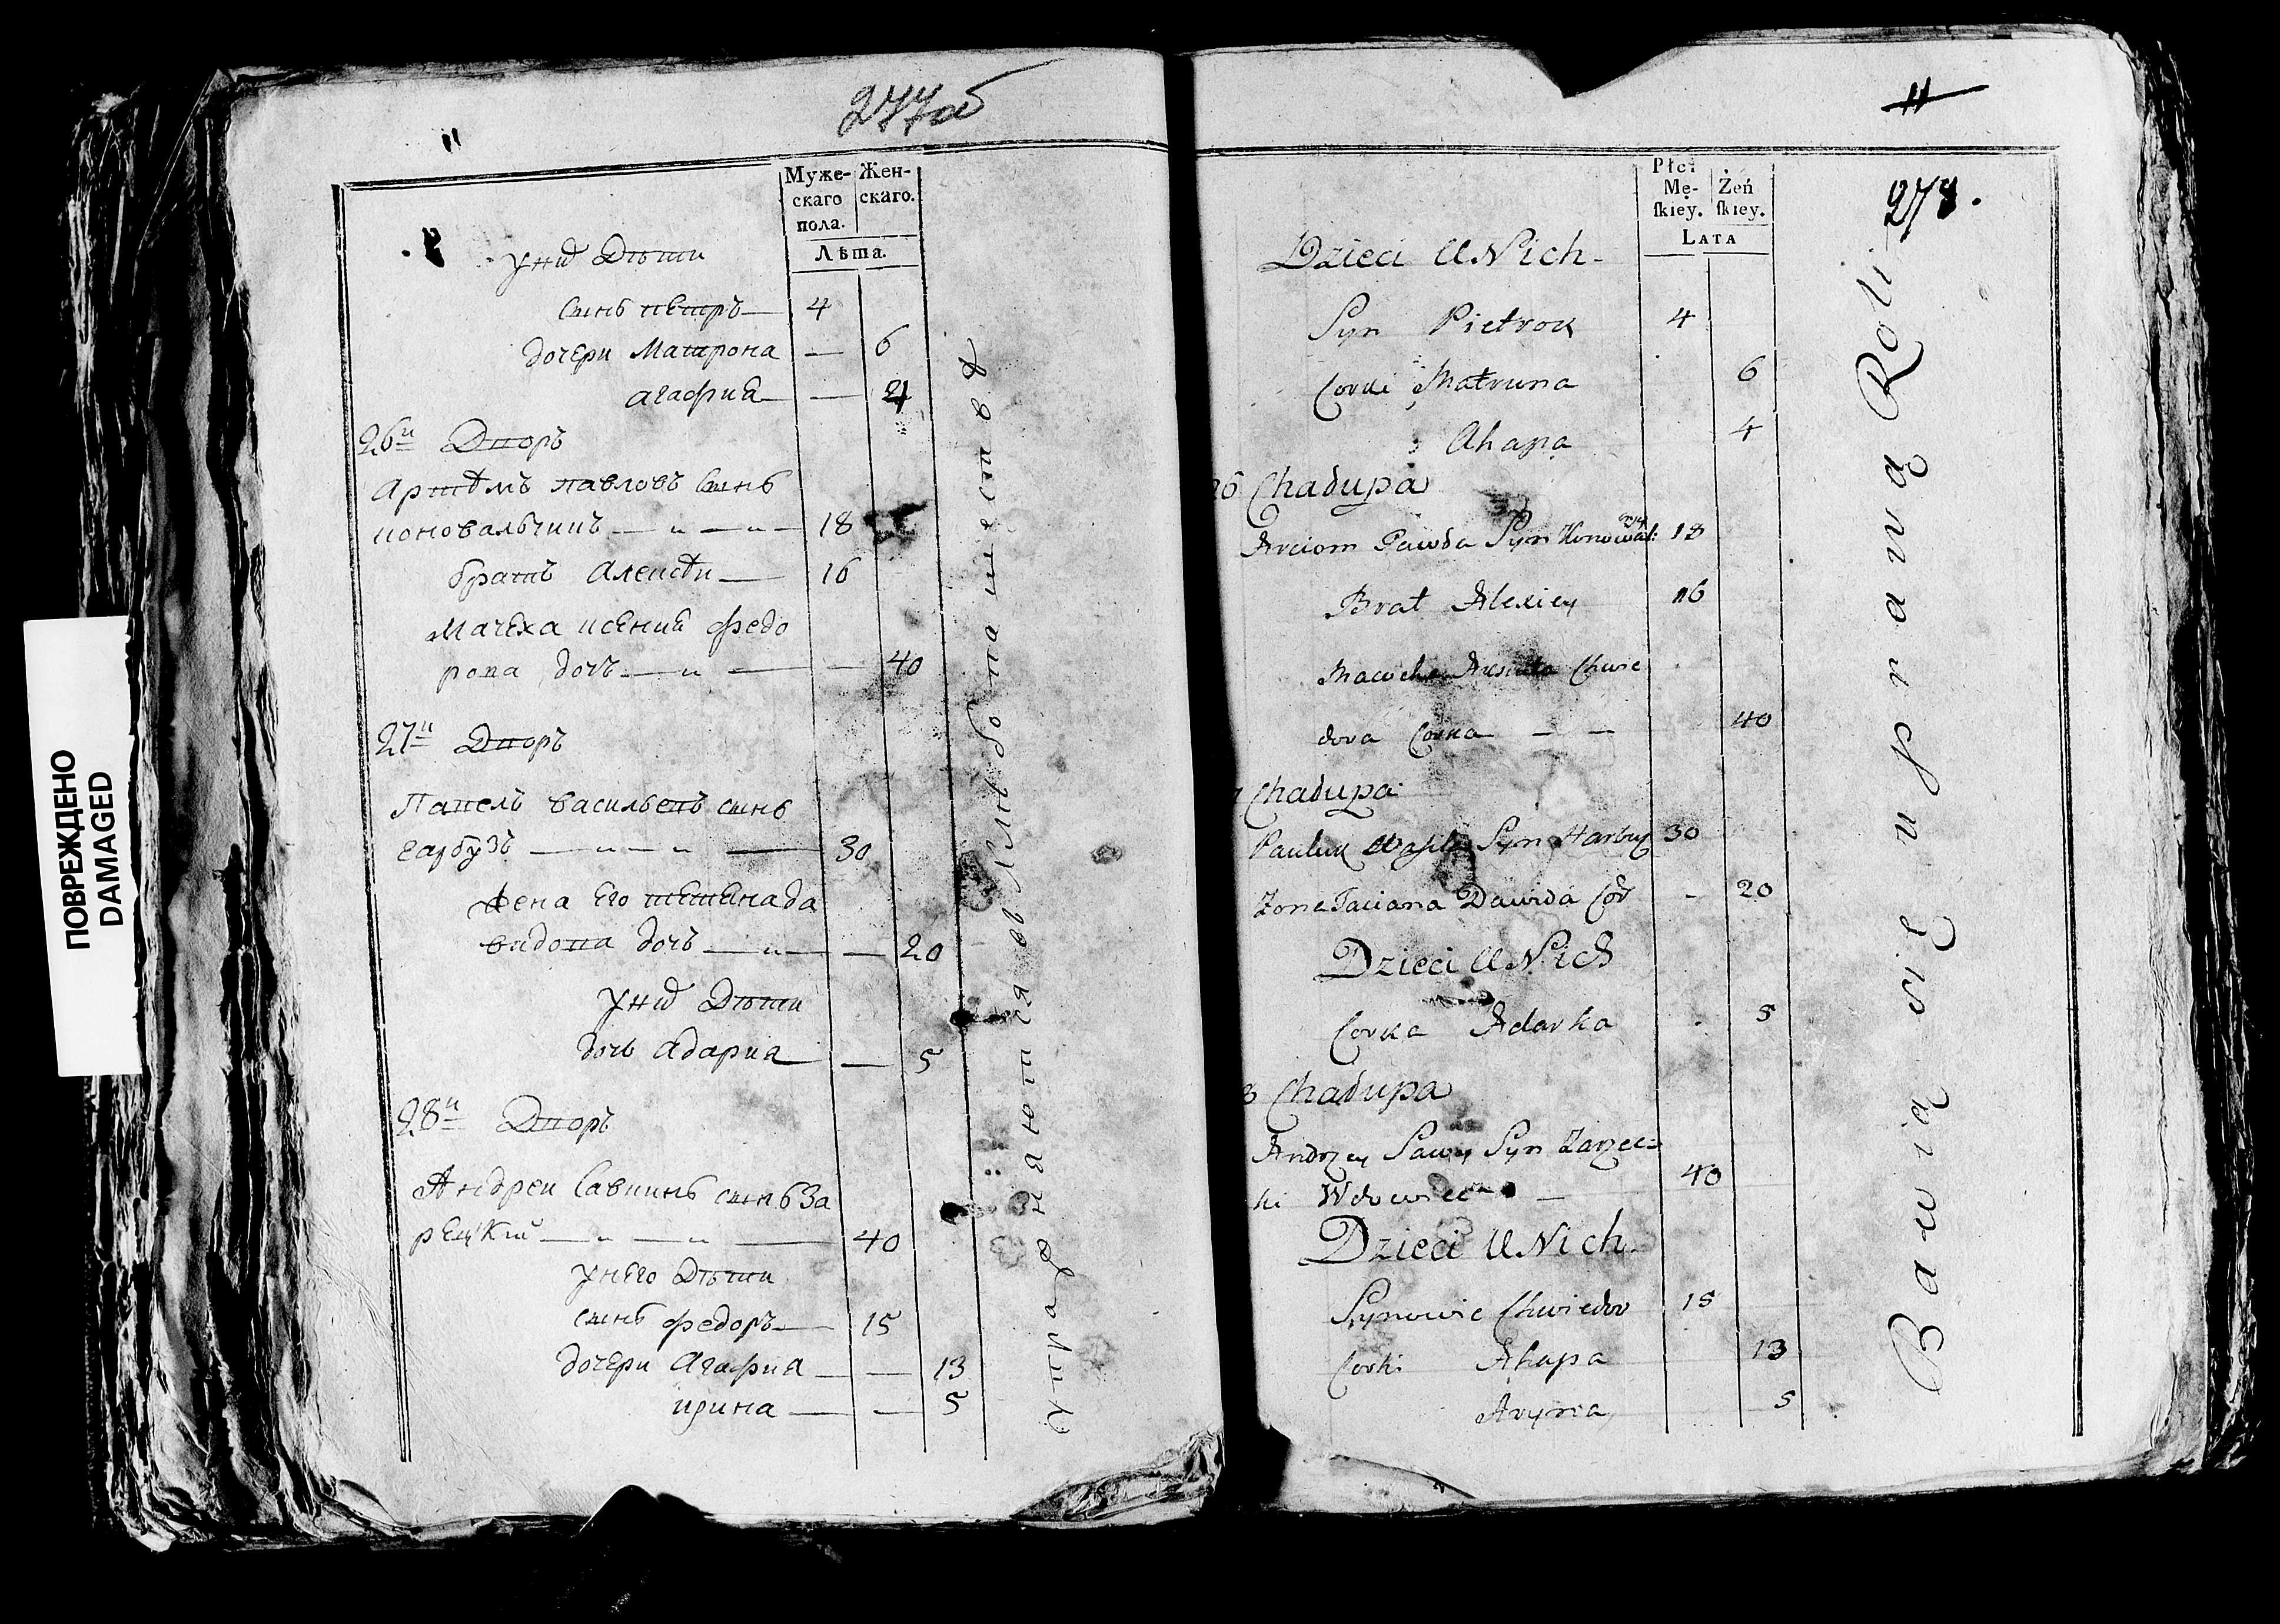 ПОВРЕЖДЕНО
DAMAGED
277об
11
Муже-
скаго
пола.
Жен-
скаго.
Лѣта.
у них Дѣти
сынъ петръ — 4
дочери Матрона — 6
агафия — 4
26й Дворъ
Артемъ павловъ сынъ
коновальчикъ — 18
братъ Алексѣи — 16
Мачеха ксения федо
рова дочъ — 40
27й Дворъ
Павелъ васильевъ сынъ
гарбузъ — 30
жена Его тетяна да
видова дочъ — 20
у них Дѣти
дочъ адарка — 5
28й Дворъ
Андреи Савинъ сынъ За
рецкий — 40
у него Дѣти
сынъ федоръ — 15
дочери Агафиа — 13
ирина — 5
упражняются в хлѣбопашествѣ
11
278.
Płci
Mę-
ſkiey.
Żeń
ſkiey.
LATA
Dzieci U Nich
Syn Pietrok 4
Corki Matruna 6
Ahapa 4
26 Chałupa
Arciom Pawła Syn Konowal: 18
Brat Alexiey 16
Macocha Chwie
dora Corka — 40
Chałupa
Pauluk Wasila Syn Harbuz 30
Zona Taciana Dawida Cor - 20
Dzieci U Nich
Corka Adarka 5
8 Chałupa
Andrzey Sawy Syn Zarzec=
ki Wdowiec — 40
Dzieci U Nich
Synowie Chwiedor 15
Corki Ahapa 13
Aryna 5
Bawią się uprawą Roli